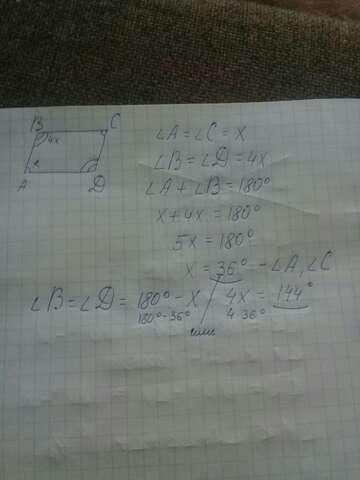 B 4x C
A x D
∠A = ∠C = x
∠B = ∠D = 4x
∠A + ∠B = 180°
x + 4x = 180°
5x = 180°
x = 36° - ∠A, ∠C
∠B = ∠D = 180° - x / 4x = 144°
180° - 36° или 4·36°